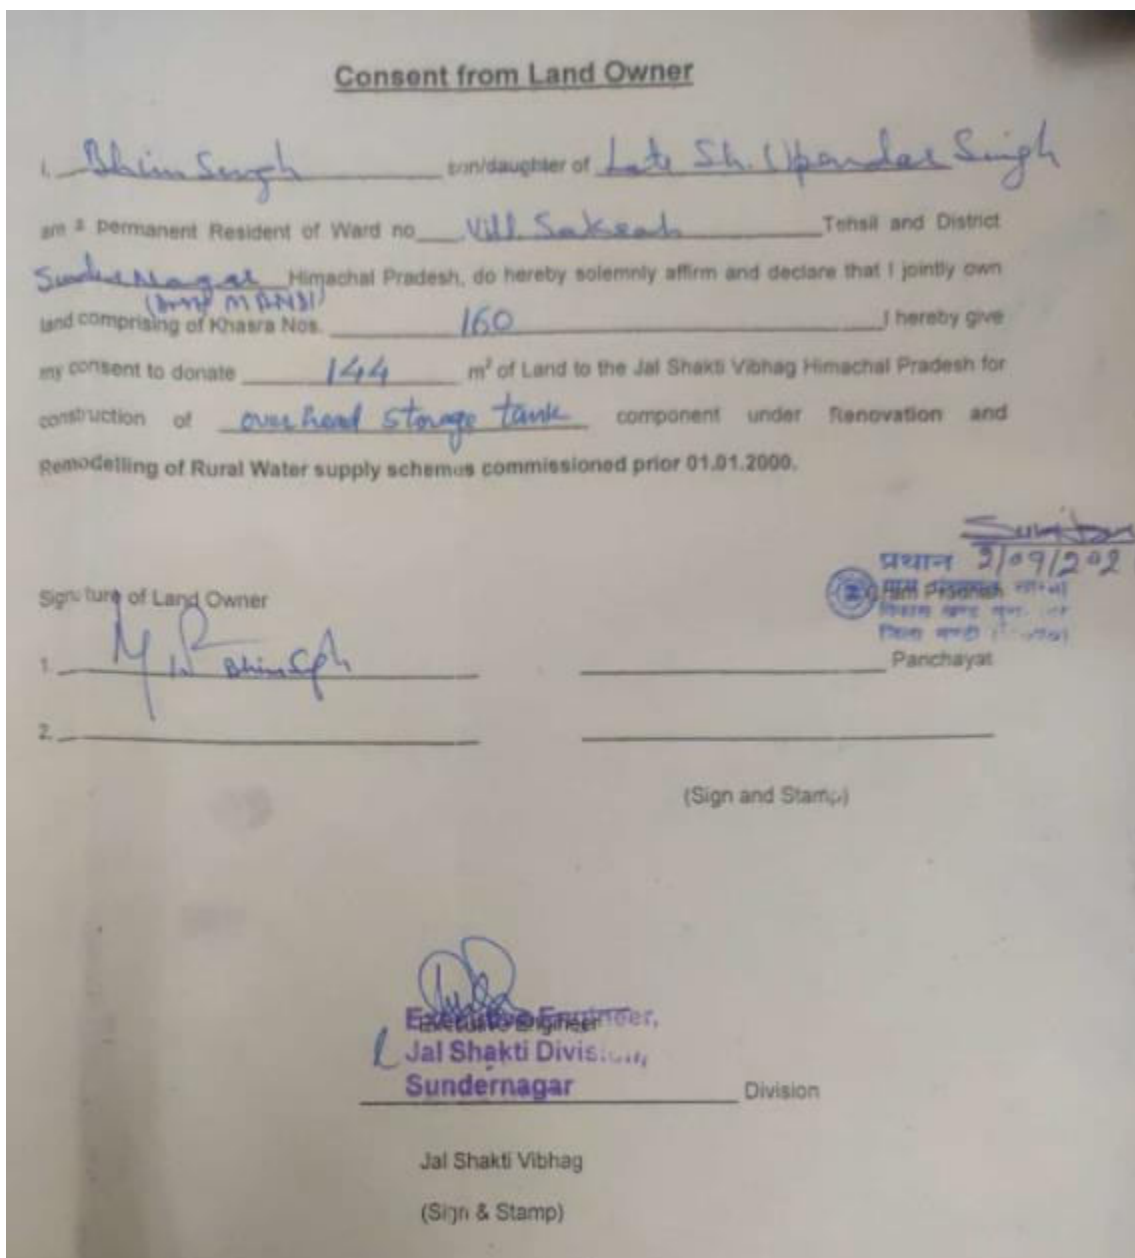 Consent from Land Owner
I, Bhim Singh son/daughter of Late Sh. Upender Singh
am a permanent Resident of Ward no Vill. Tehsil and District
Sunder Nagar Himachal Pradesh, do hereby solemnly affirm and declare that I jointly own
MANDI)
land comprising of Khasra Nos. 160 I hereby give
my consent to donate 144 m² of Land to the Jal Shakti Vibhag Himachal Pradesh for
construction of over head storage tank component under Renovation and
Remodelling of Rural Water supply schemes commissioned prior 01.01.2000.
प्रधान 2/09/202
Signature of Land Owner
1. Bhim Sgh Panchayat
2.
(Sign and Stamp)
Executive Engineer,
Jal Shakti Division,
Sundernagar Division
Jal Shakti Vibhag
(Sign & Stamp)